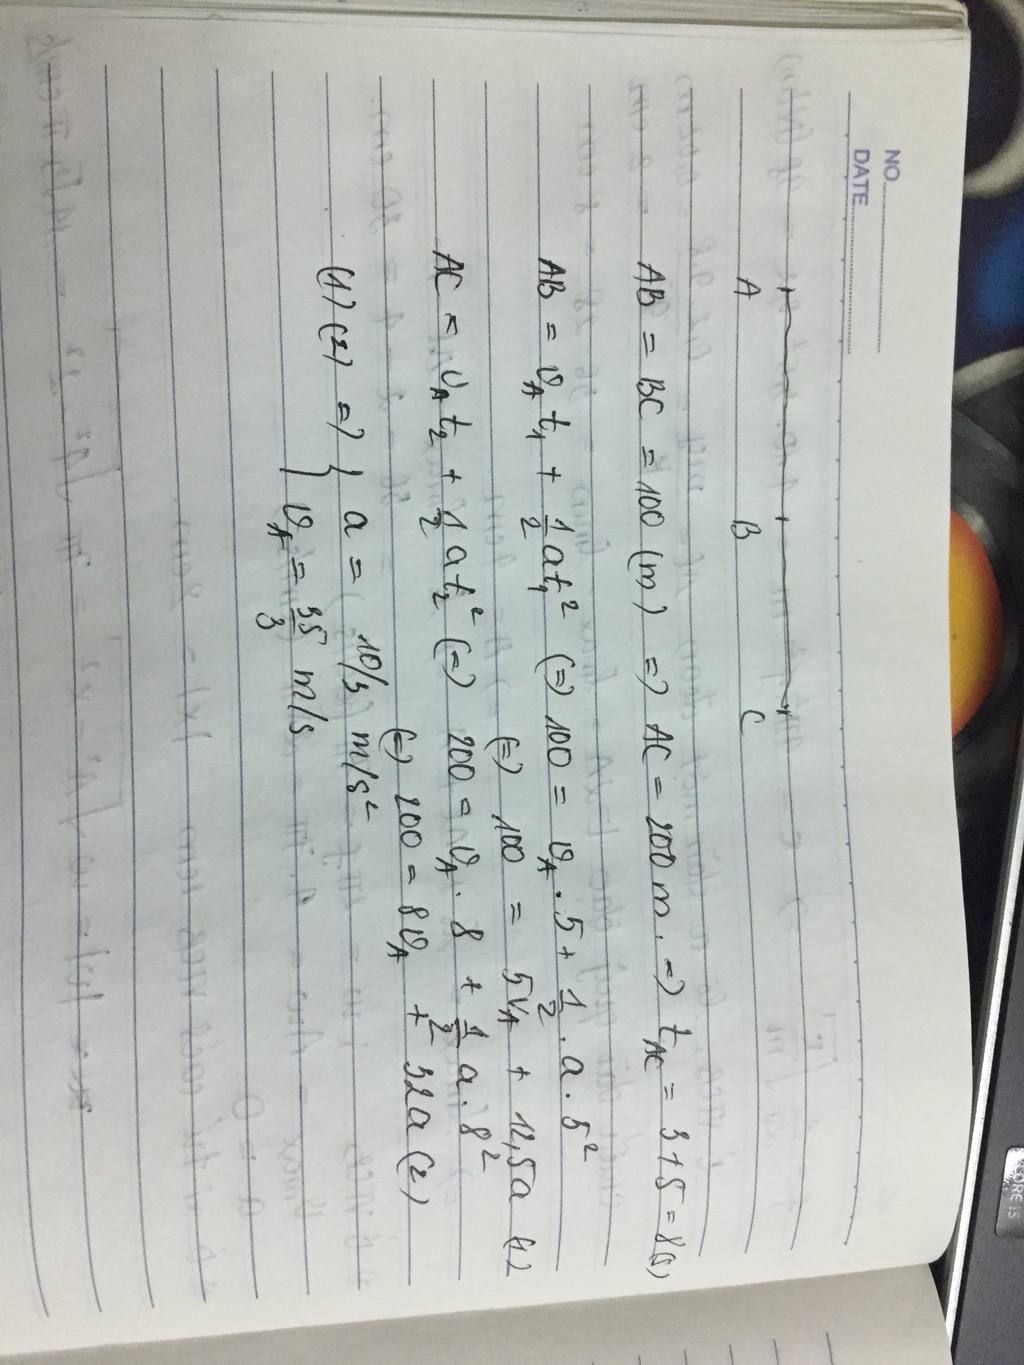 NO.
DATE
A B C
AB = BC = 100 (m) => AC = 200 m. => t_AC = 3+5 = 8(s)
AB = v_A t_1 + 1/2 at_1^2 (=) 100 = v_A . 5 + 1/2 . a . 5^2
(=) 100 = 5v_A + 12,5a
AC = v_A t_2 + 1/2 at_2^2 (=) 200 = v_A . 8 + 1/2 a . 8^2
(=) 200 = 8v_A + 32a (2)
(1) (2) =) } a = 10/3 m/s^2
v_A = 35/3 m/s
CORE i5